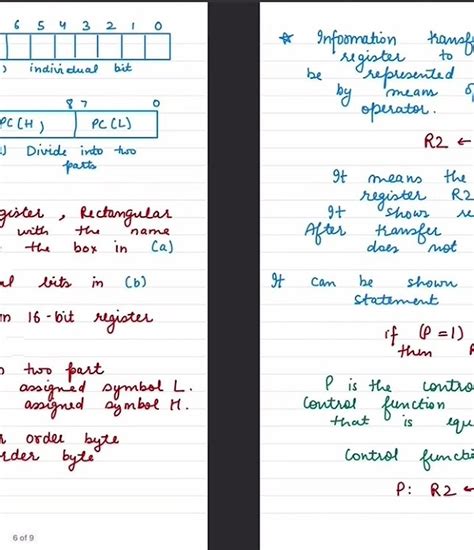 6 5 4 3 2 1 0
) individual bit
8 7 0
PC(H) PC(L)
) Divide into two
parts
gister, Rectangular
with the name
the box in (a)
al bits in (b)
in 16-bit register
two part
assigned symbol L.
assigned symbol H.
r order byte
rder byte
6 of 9
☆ Information transf
register to
be represented
by means o
operator.
R2 ←
It means the
register R2
It shows
After transfer
does not
It can be shown
statement
if (P=1)
then
P is the contro
Control function
that is equ
Control functi
P: R2 ←